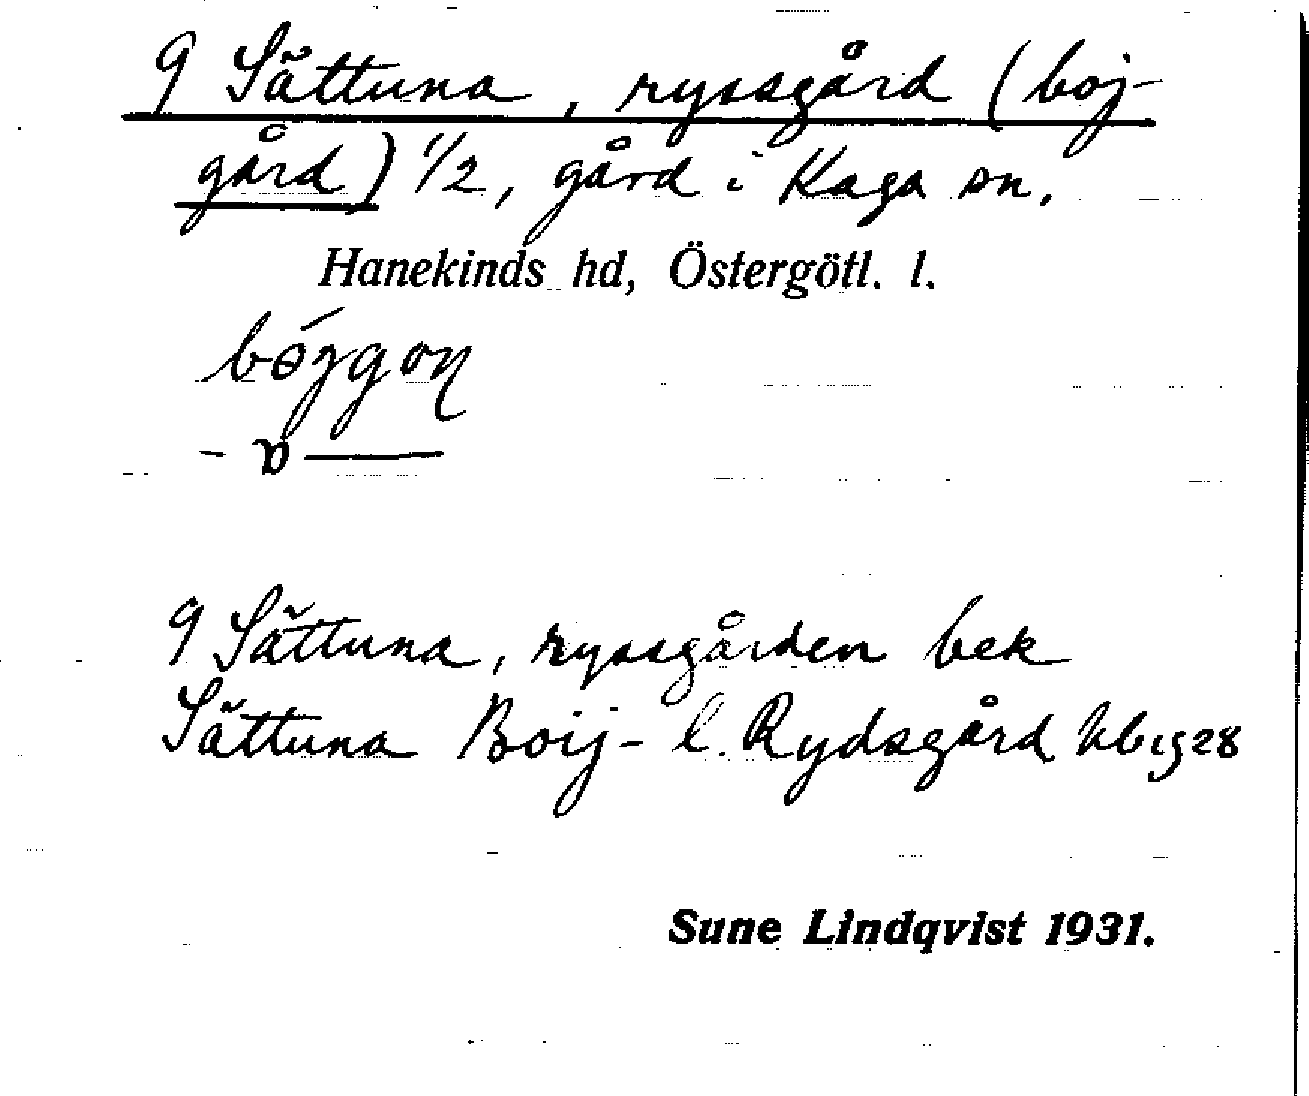 9 Sättuna, ryssgård (boj-
gård) 1/2, gård i Kaga sn.
Hanekinds hd, Östergötl. l.
bójgoɳ
9 Sättuna, ryssgården bek
Sättuna Boij- l. Rydsgård kb 1928
Sune Lindqvist 1931.